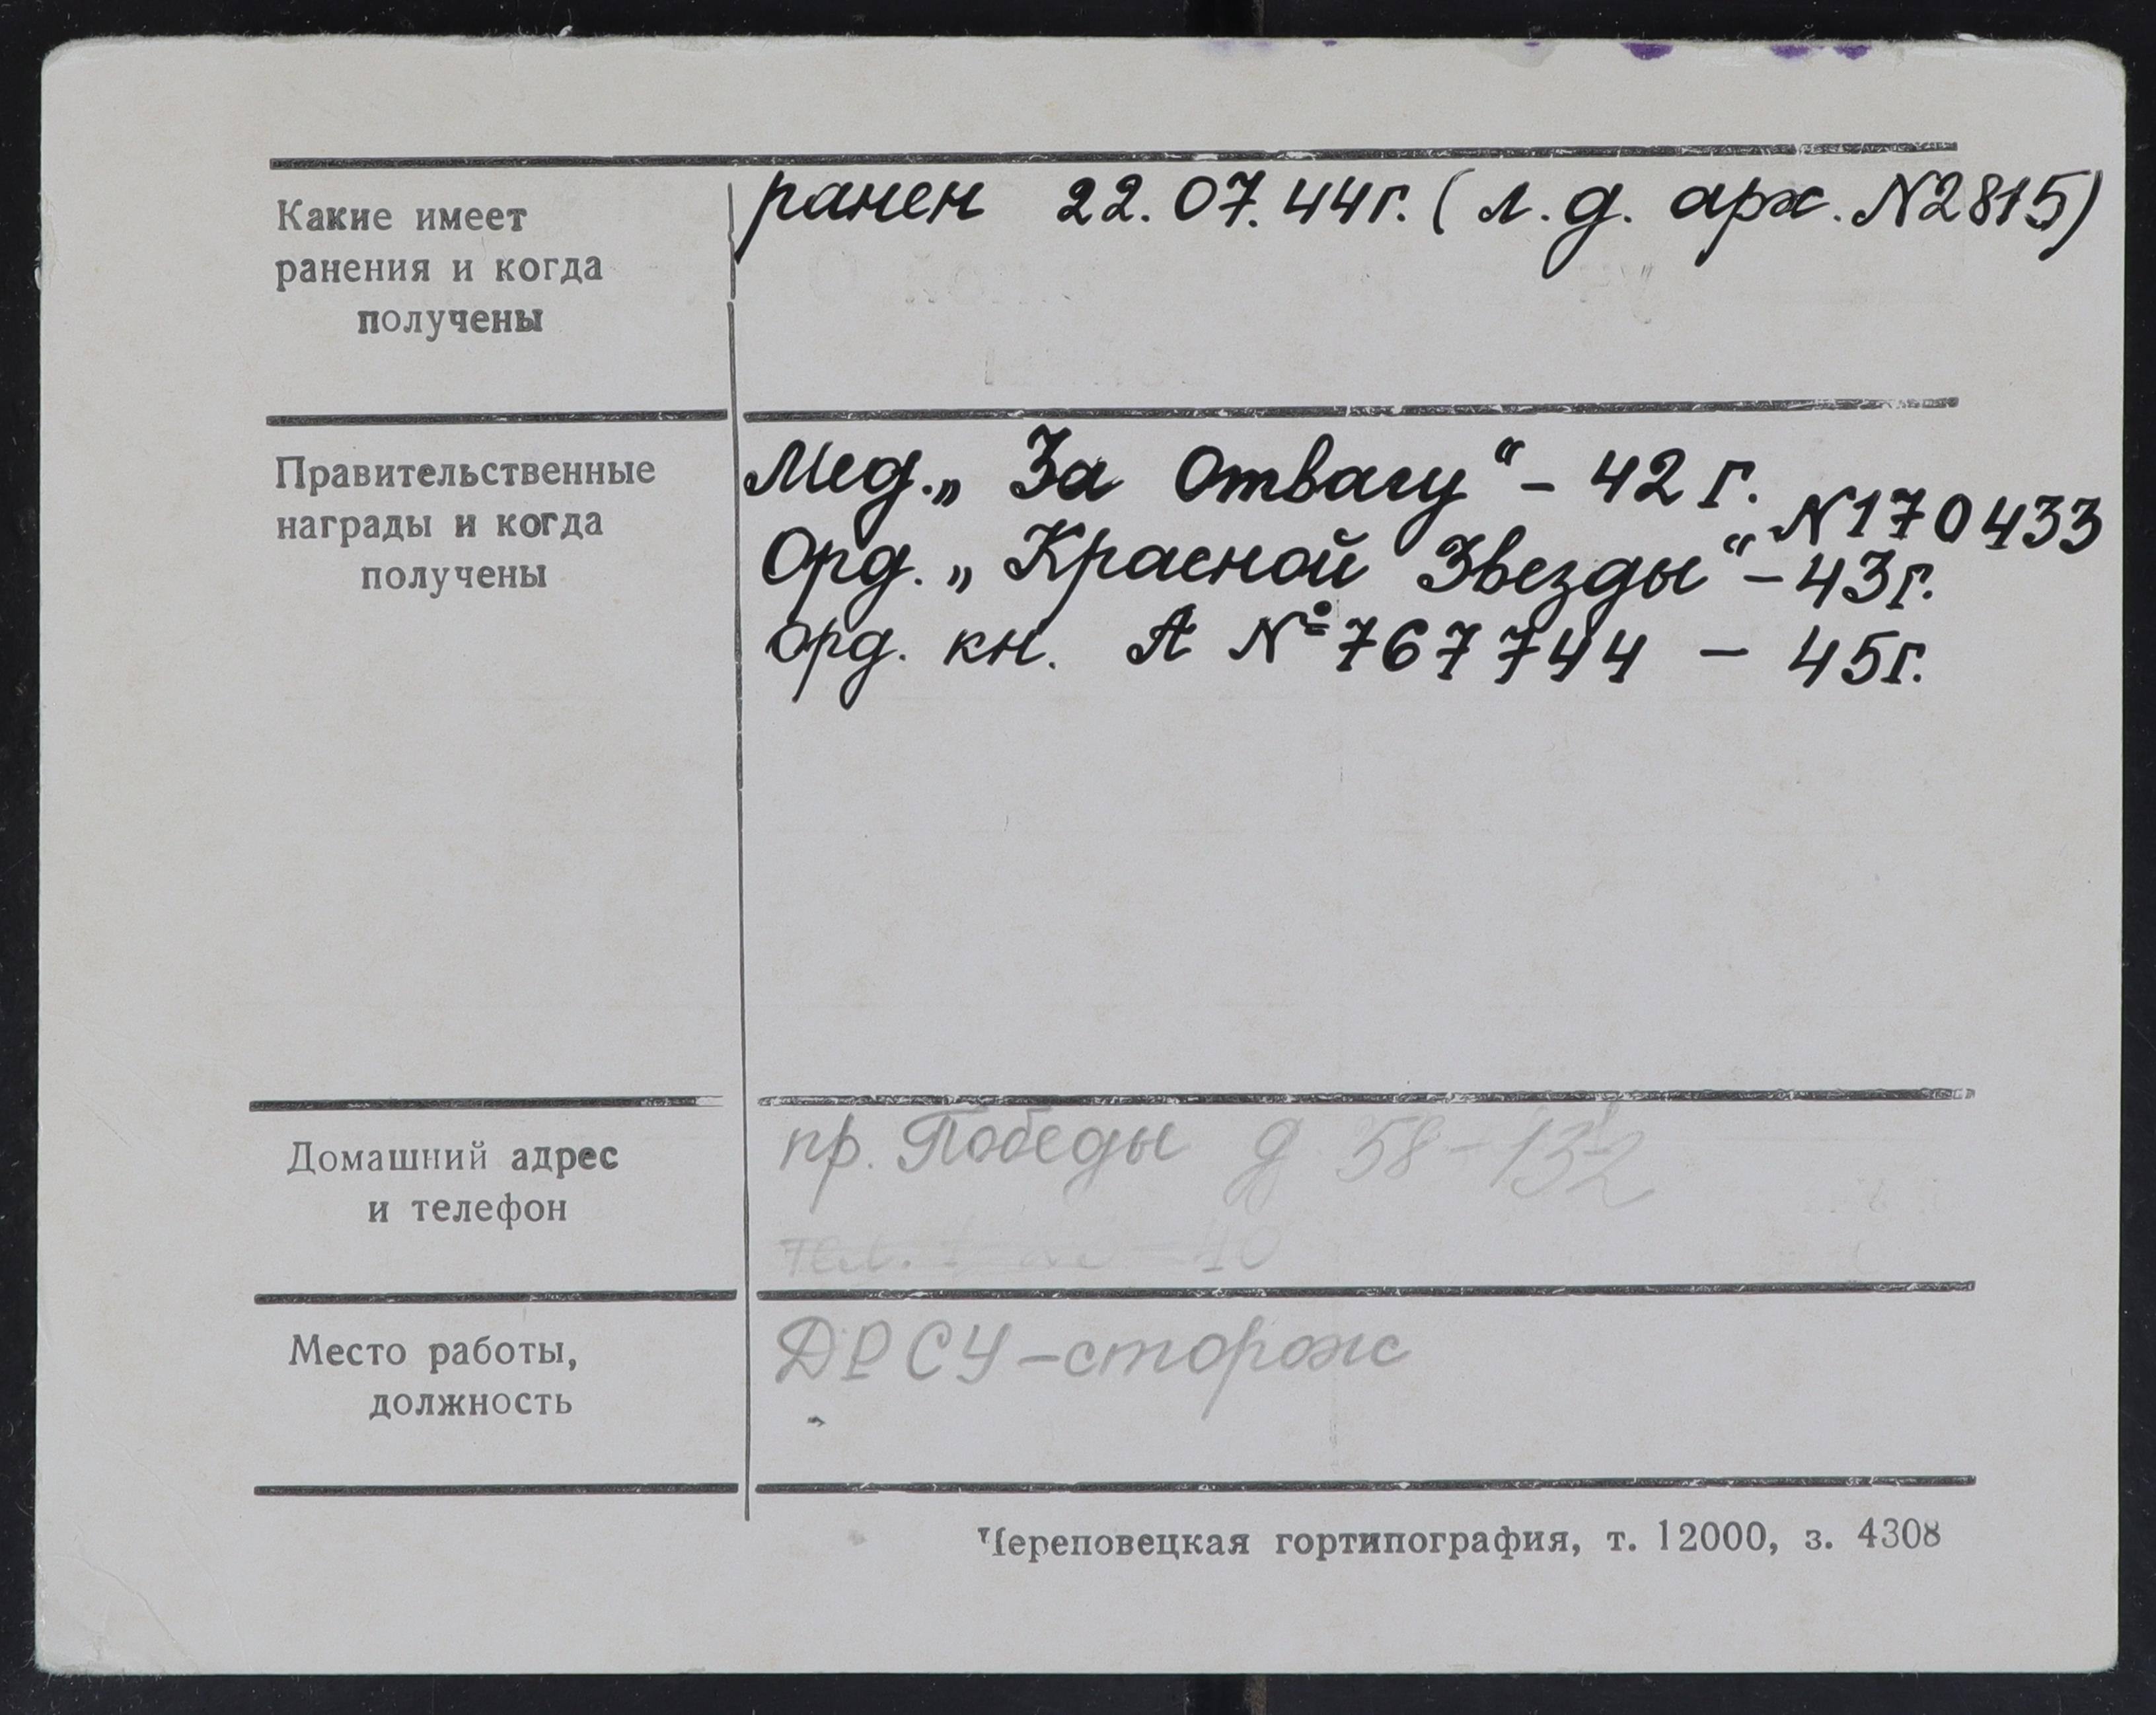 Какие имеет
ранения и когда
получены
ранен 22.07.44г. (л.д. арх. N2815)
Правительственные
награды и когда
получены
Мед. „За Отвагу“ – 42 г.
N170433
Орд. „Красной Звезды“ – 43г.
орд. кн. А №767744 – 45г.
Домашний адрес
и телефон
пр. Победы д 58-132
тел.
Место работы,
должность
ДРСУ – сторож
Череповецкая гортипография, т. 12000, з. 4308